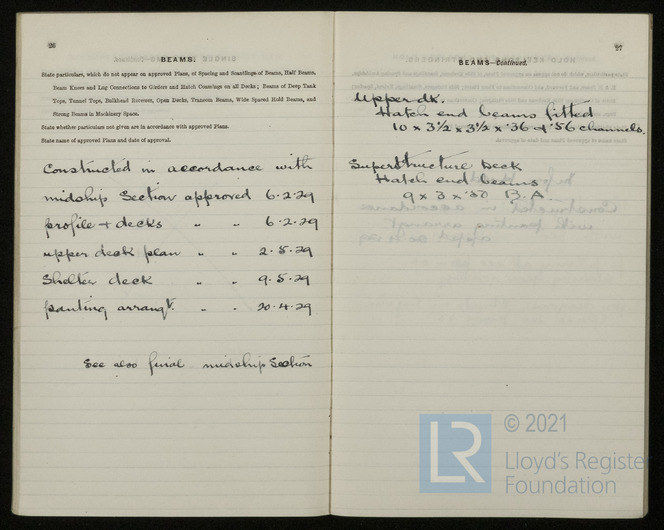 26
BEAMS.
State particulars, which do not appear on approved Plans, of Spacing and Scantlings of Beams, Half Beams,
Beam Knees and Lug Connections to Girders and Hatch Coamings on all Decks; Beams of Deep Tank
Tops, Tunnel Tops, Bulkhead Recesses, Open Decks, Transom Beams, Wide Spaced Hold Beams, and
Strong Beams in Machinery Space.
State whether particulars not given are in accordance with approved Plans.
State name of approved Plans and date of approval.
Constructed in accordance with
midship Section approved 6.2.29
profile + decks " " 6.2.29
upper deck plan " " 2.5.29
Shelter deck " " 9.5.29
panting arrangt. " " 20.4.29
See also final midship Section
27
BEAMS—Continued.
Upper dk.
Hatch end beams fitted
10 x 3½ x 3½ x .36 + .56 channels.
Superstructure Deck
Hatch end beams
9 x 3 x .30 B.A
© 2021
LR
Lloyd's Register
Foundation